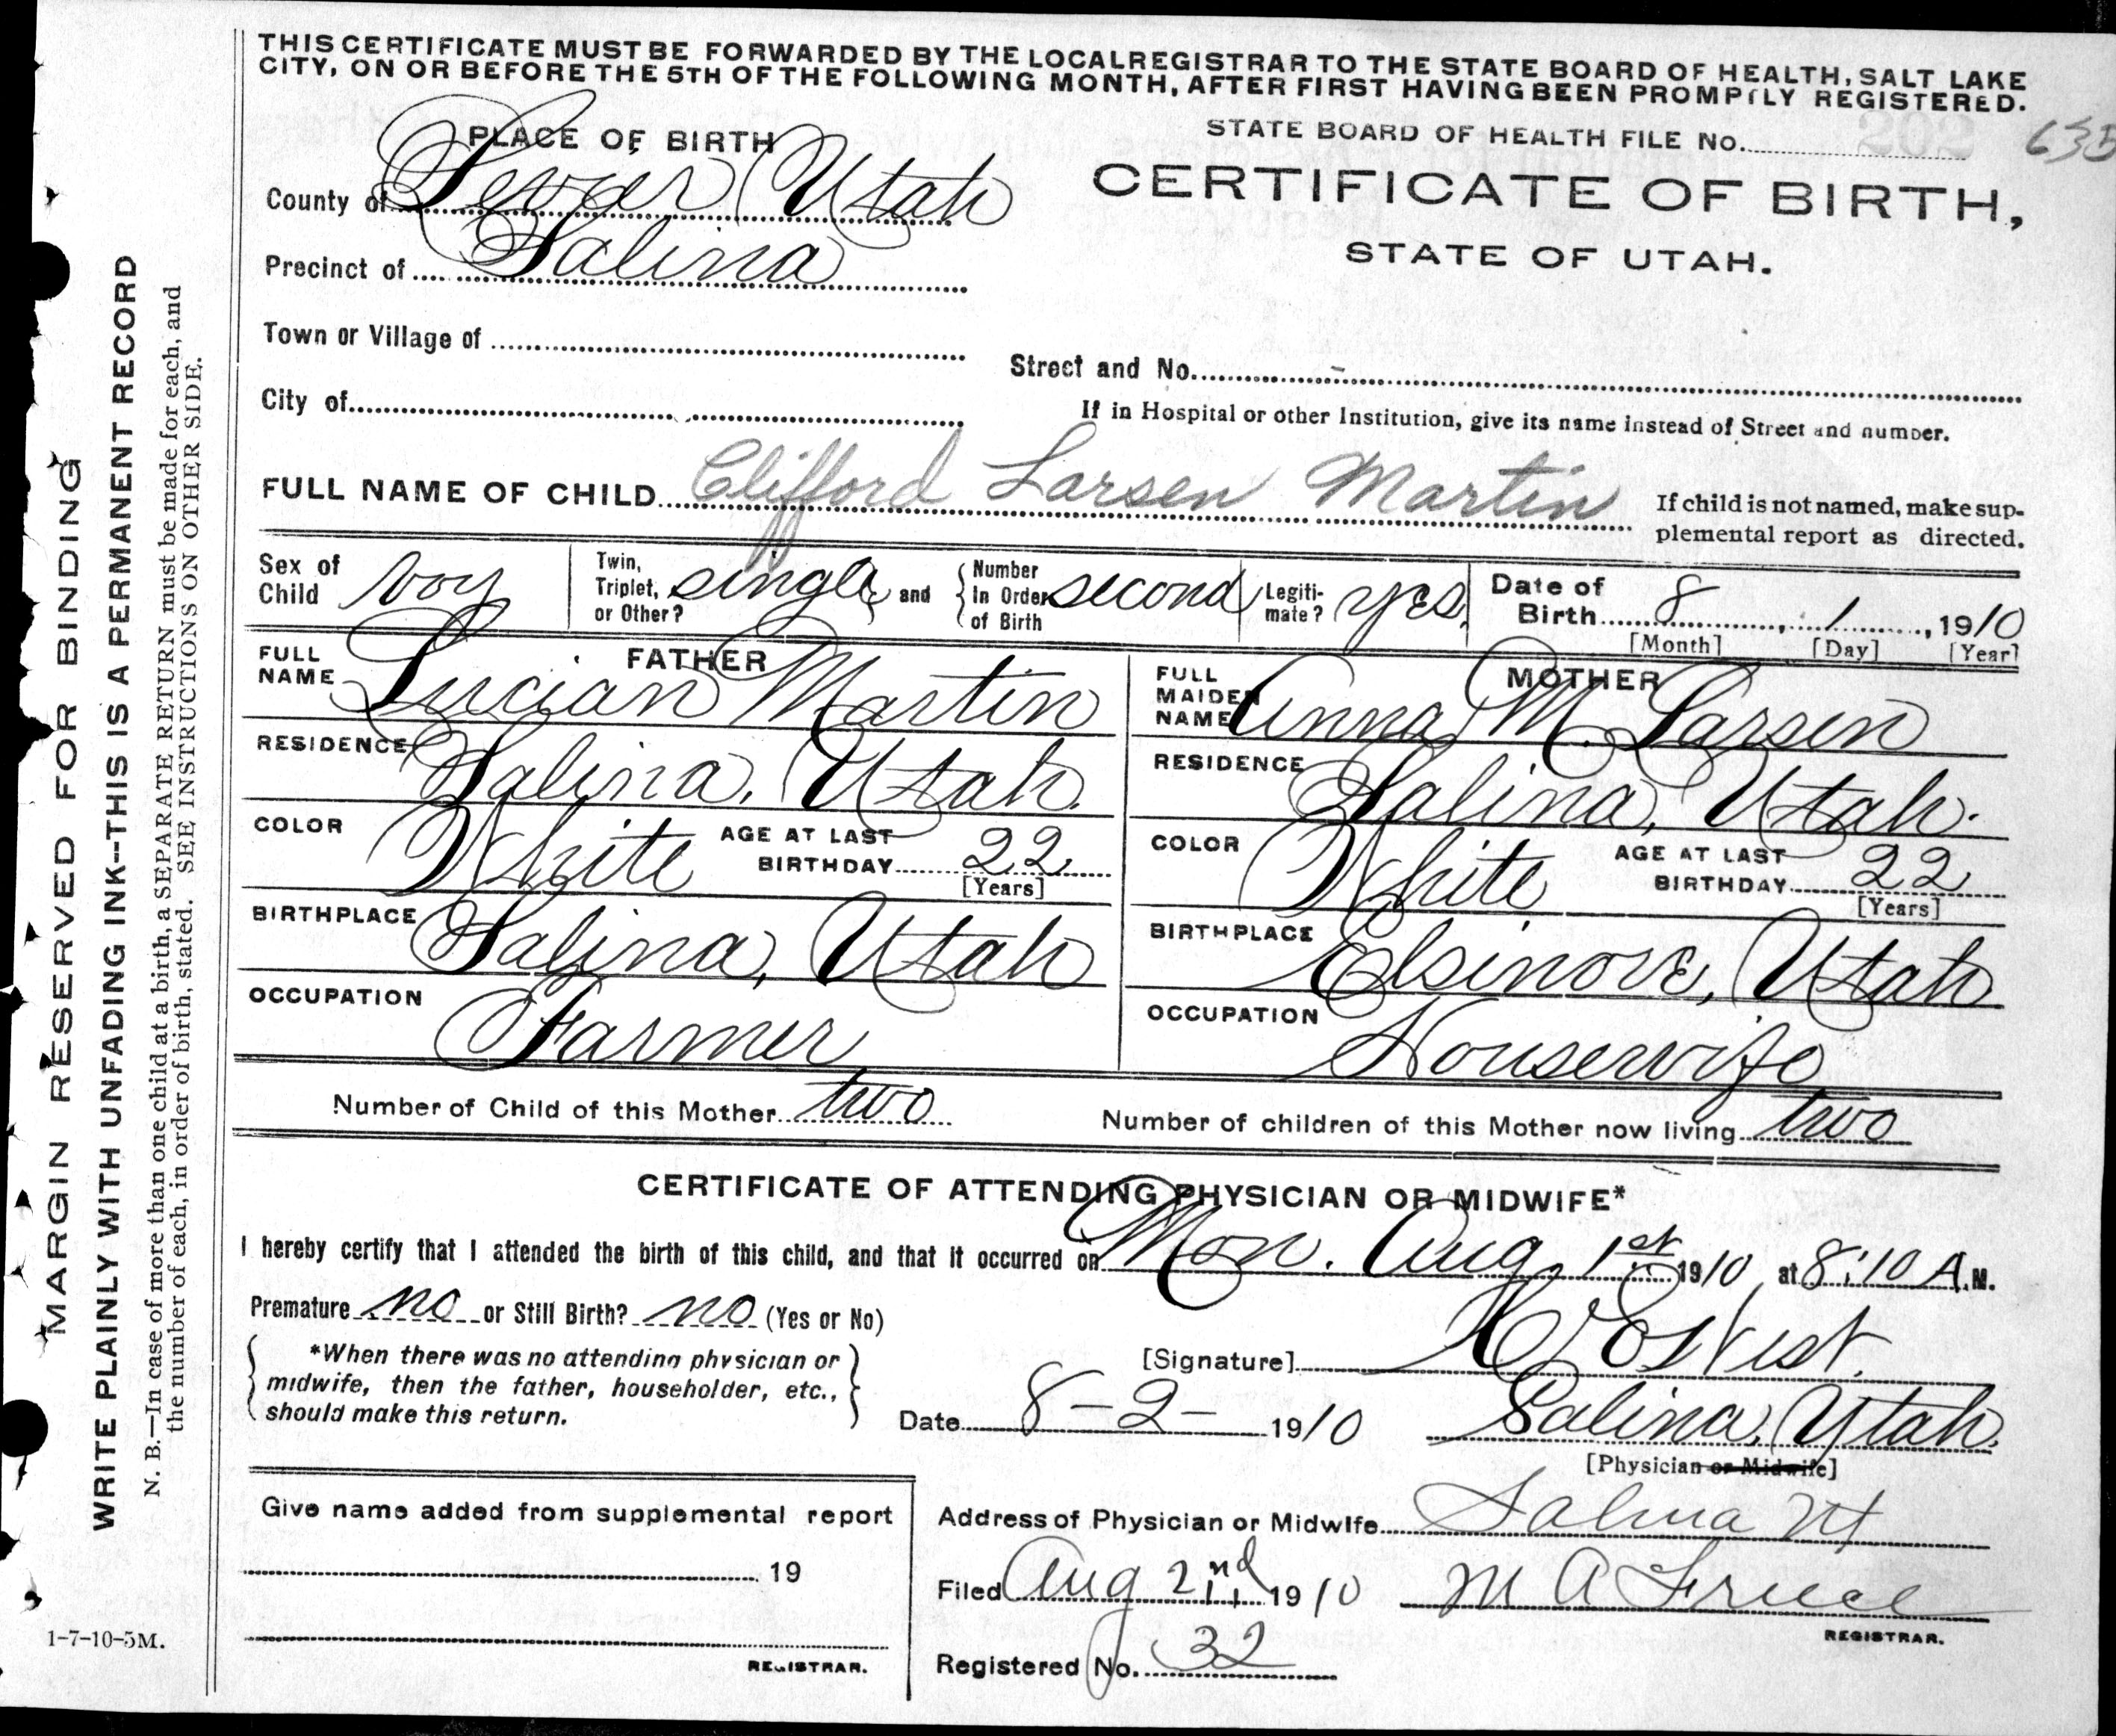 THIS CERTIFICATE MUST BE FORWARDED BY THE LOCAL REGISTRAR TO THE STATE BOARD OF HEALTH, SALT LAKE
CITY, ON OR BEFORE THE 5TH OF THE FOLLOWING MONTH, AFTER FIRST HAVING BEEN PROMPTLY REGISTERED.
PLACE OF BIRTH
STATE BOARD OF HEALTH FILE No. 202 635
County of Sevier Utah
CERTIFICATE OF BIRTH,
Precinct of Salina
STATE OF UTAH.
Town or Village of
Street and No. -
City of
If in Hospital or other Institution, give its name instead of Street and number.
FULL NAME OF CHILD Clifford Larsen Martin
If child is not named, make sup-
plemental report as directed.
Sex of Child boy
Twin, Triplet, or Other? single and Number In Order of Birth second
Legiti-mate? yes.
Date of Birth 8, 1, 1910
[Month] [Day] [Year]
FATHER
FULL NAME Lucian Martin
MOTHER
FULL MAIDEN NAME Anna M. Larsen
RESIDENCE Salina, Utah.
RESIDENCE Salina, Utah.
COLOR White AGE AT LAST BIRTHDAY 22 [Years]
COLOR White AGE AT LAST BIRTHDAY 22 [Years]
BIRTHPLACE Salina, Utah
BIRTHPLACE Elsinore, Utah
OCCUPATION Farmer
OCCUPATION Housewife
Number of Child of this Mother two
Number of children of this Mother now living two
CERTIFICATE OF ATTENDING PHYSICIAN OR MIDWIFE*
I hereby certify that I attended the birth of this child, and that it occurred on Mon. Aug. 1st 1910 at 8:10 A.M.
Premature no or Still Birth? no (Yes or No)
*When there was no attending physician or
midwife, then the father, householder, etc.,
should make this return.
[Signature]
Date 8-2- 1910
Salina, Utah.
[Physician or Midwife]
Give name added from supplemental report
19
REGISTRAR.
Address of Physician or Midwife Salina Ut
Filed Aug 2nd 1910
M A
REGISTRAR.
Registered No. 32
MARGIN RESERVED FOR BINDING
WRITE PLAINLY WITH UNFADING INK--THIS IS A PERMANENT RECORD
N. B.—In case of more than one child at a birth, a SEPARATE RETURN must be made for each, and
the number of each, in order of birth, stated. SEE INSTRUCTIONS ON OTHER SIDE.
1-7-10-5M.